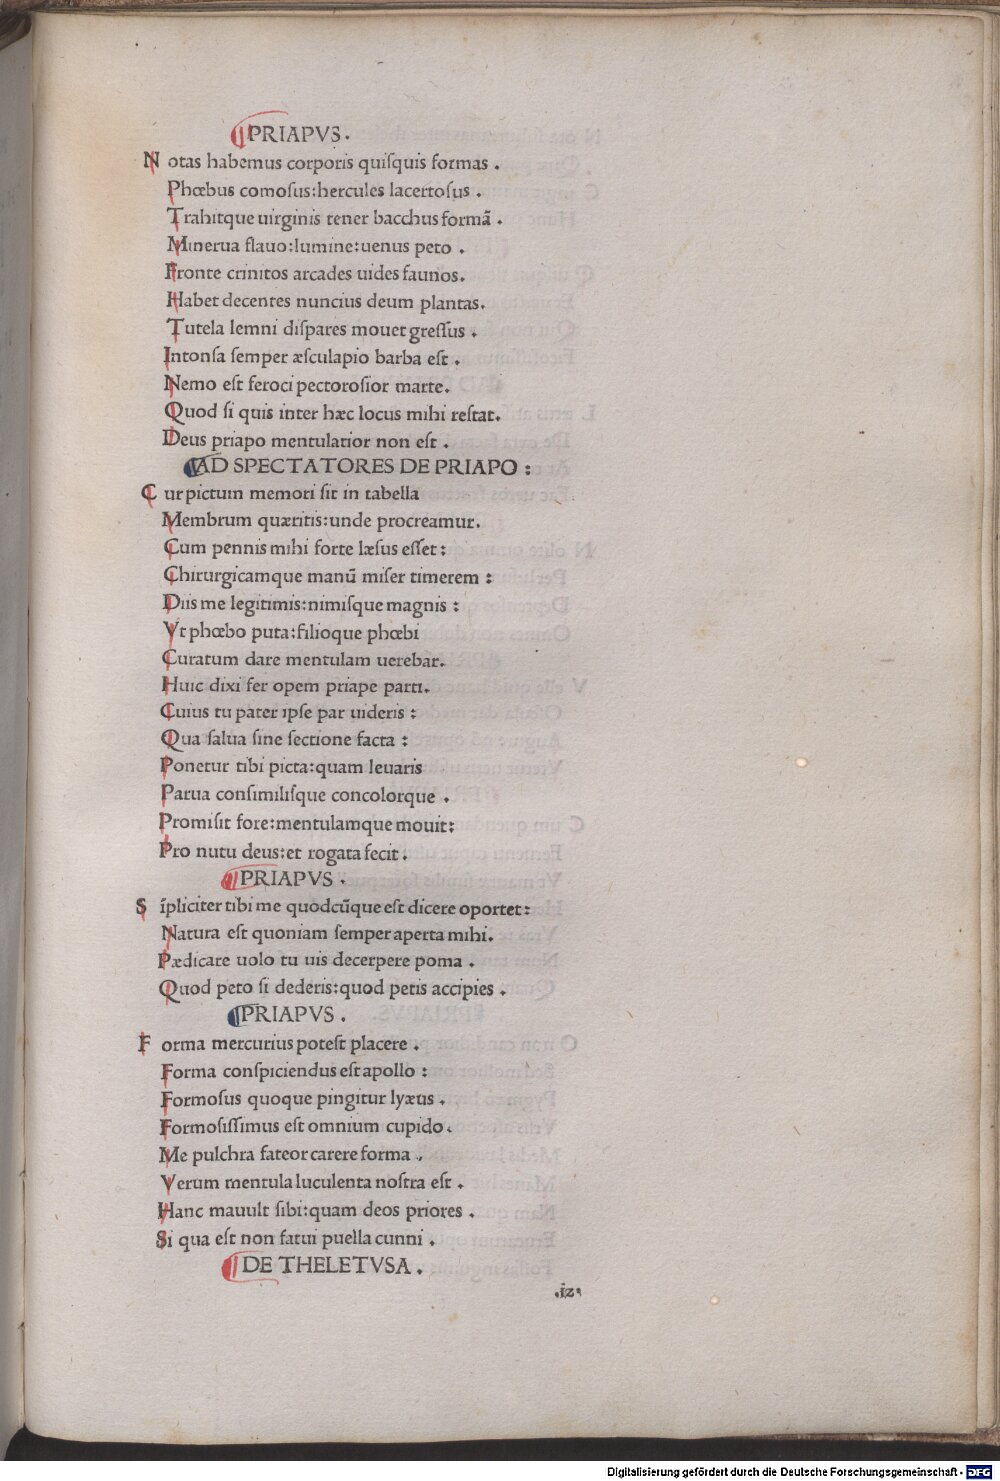 PRIAPVS.
Notas habemus corporis quiſquis formas .
Phœbus comoſus:hercules lacertoſus .
Trahitque uirginis tener bacchus formã .
Minerua flauo:lumine:uenus peto .
Fronte crinitos arcades uides faunos.
Habet decentes nuncius deum plantas.
Tutela lemni diſpares mouet greſſus .
Intonſa ſemper æſculapio barba eſt .
Nemo eſt feroci pectoroſior marte.
Quod ſi quis inter hæc locus mihi reſtat.
Deus priapo mentulatior non eſt .
AD SPECTATORES DE PRIAPO :
Cur pictum memori ſit in tabella
Membrum quæritis:unde procreamur.
Cum pennis mihi forte læſus eſſet :
Chirurgicamque manũ miſer timerem :
Diis me legitimis:nimiſque magnis :
Vt phœbo puta:filioque phœbi
Curatum dare mentulam uerebar.
Huic dixi fer opem priape parti.
Cuius tu pater ipſe par uideris :
Qua ſalua ſine ſectione facta :
Ponetur tibi picta:quam leuaris
Parua conſimiliſque concolorque .
Promiſit fore:mentulamque mouit:
Pro nutu deus:et rogata fecit .
PRIAPVS .
Sĩpliciter tibi me quodcũque eſt dicere oportet :
Natura eſt quoniam ſemper aperta mihi.
Pædicare uolo tu uis decerpere poma .
Quod peto ſi dederis:quod petis accipies .
PRIAPVS .
Forma mercurius poteſt placere .
Forma conſpiciendus eſt apollo :
Formoſus quoque pingitur lyæus .
Formoſiſſimus eſt omnium cupido.
Me pulchra fateor carere forma .
Verum mentula luculenta noſtra eſt .
Hanc mauult ſibi:quam deos priores .
Si qua eſt non fatui puella cunni .
DE THELETVSA .
.iz.
Digitalisierung gefördert durch die Deutsche Forschungsgemeinschaft - DFG